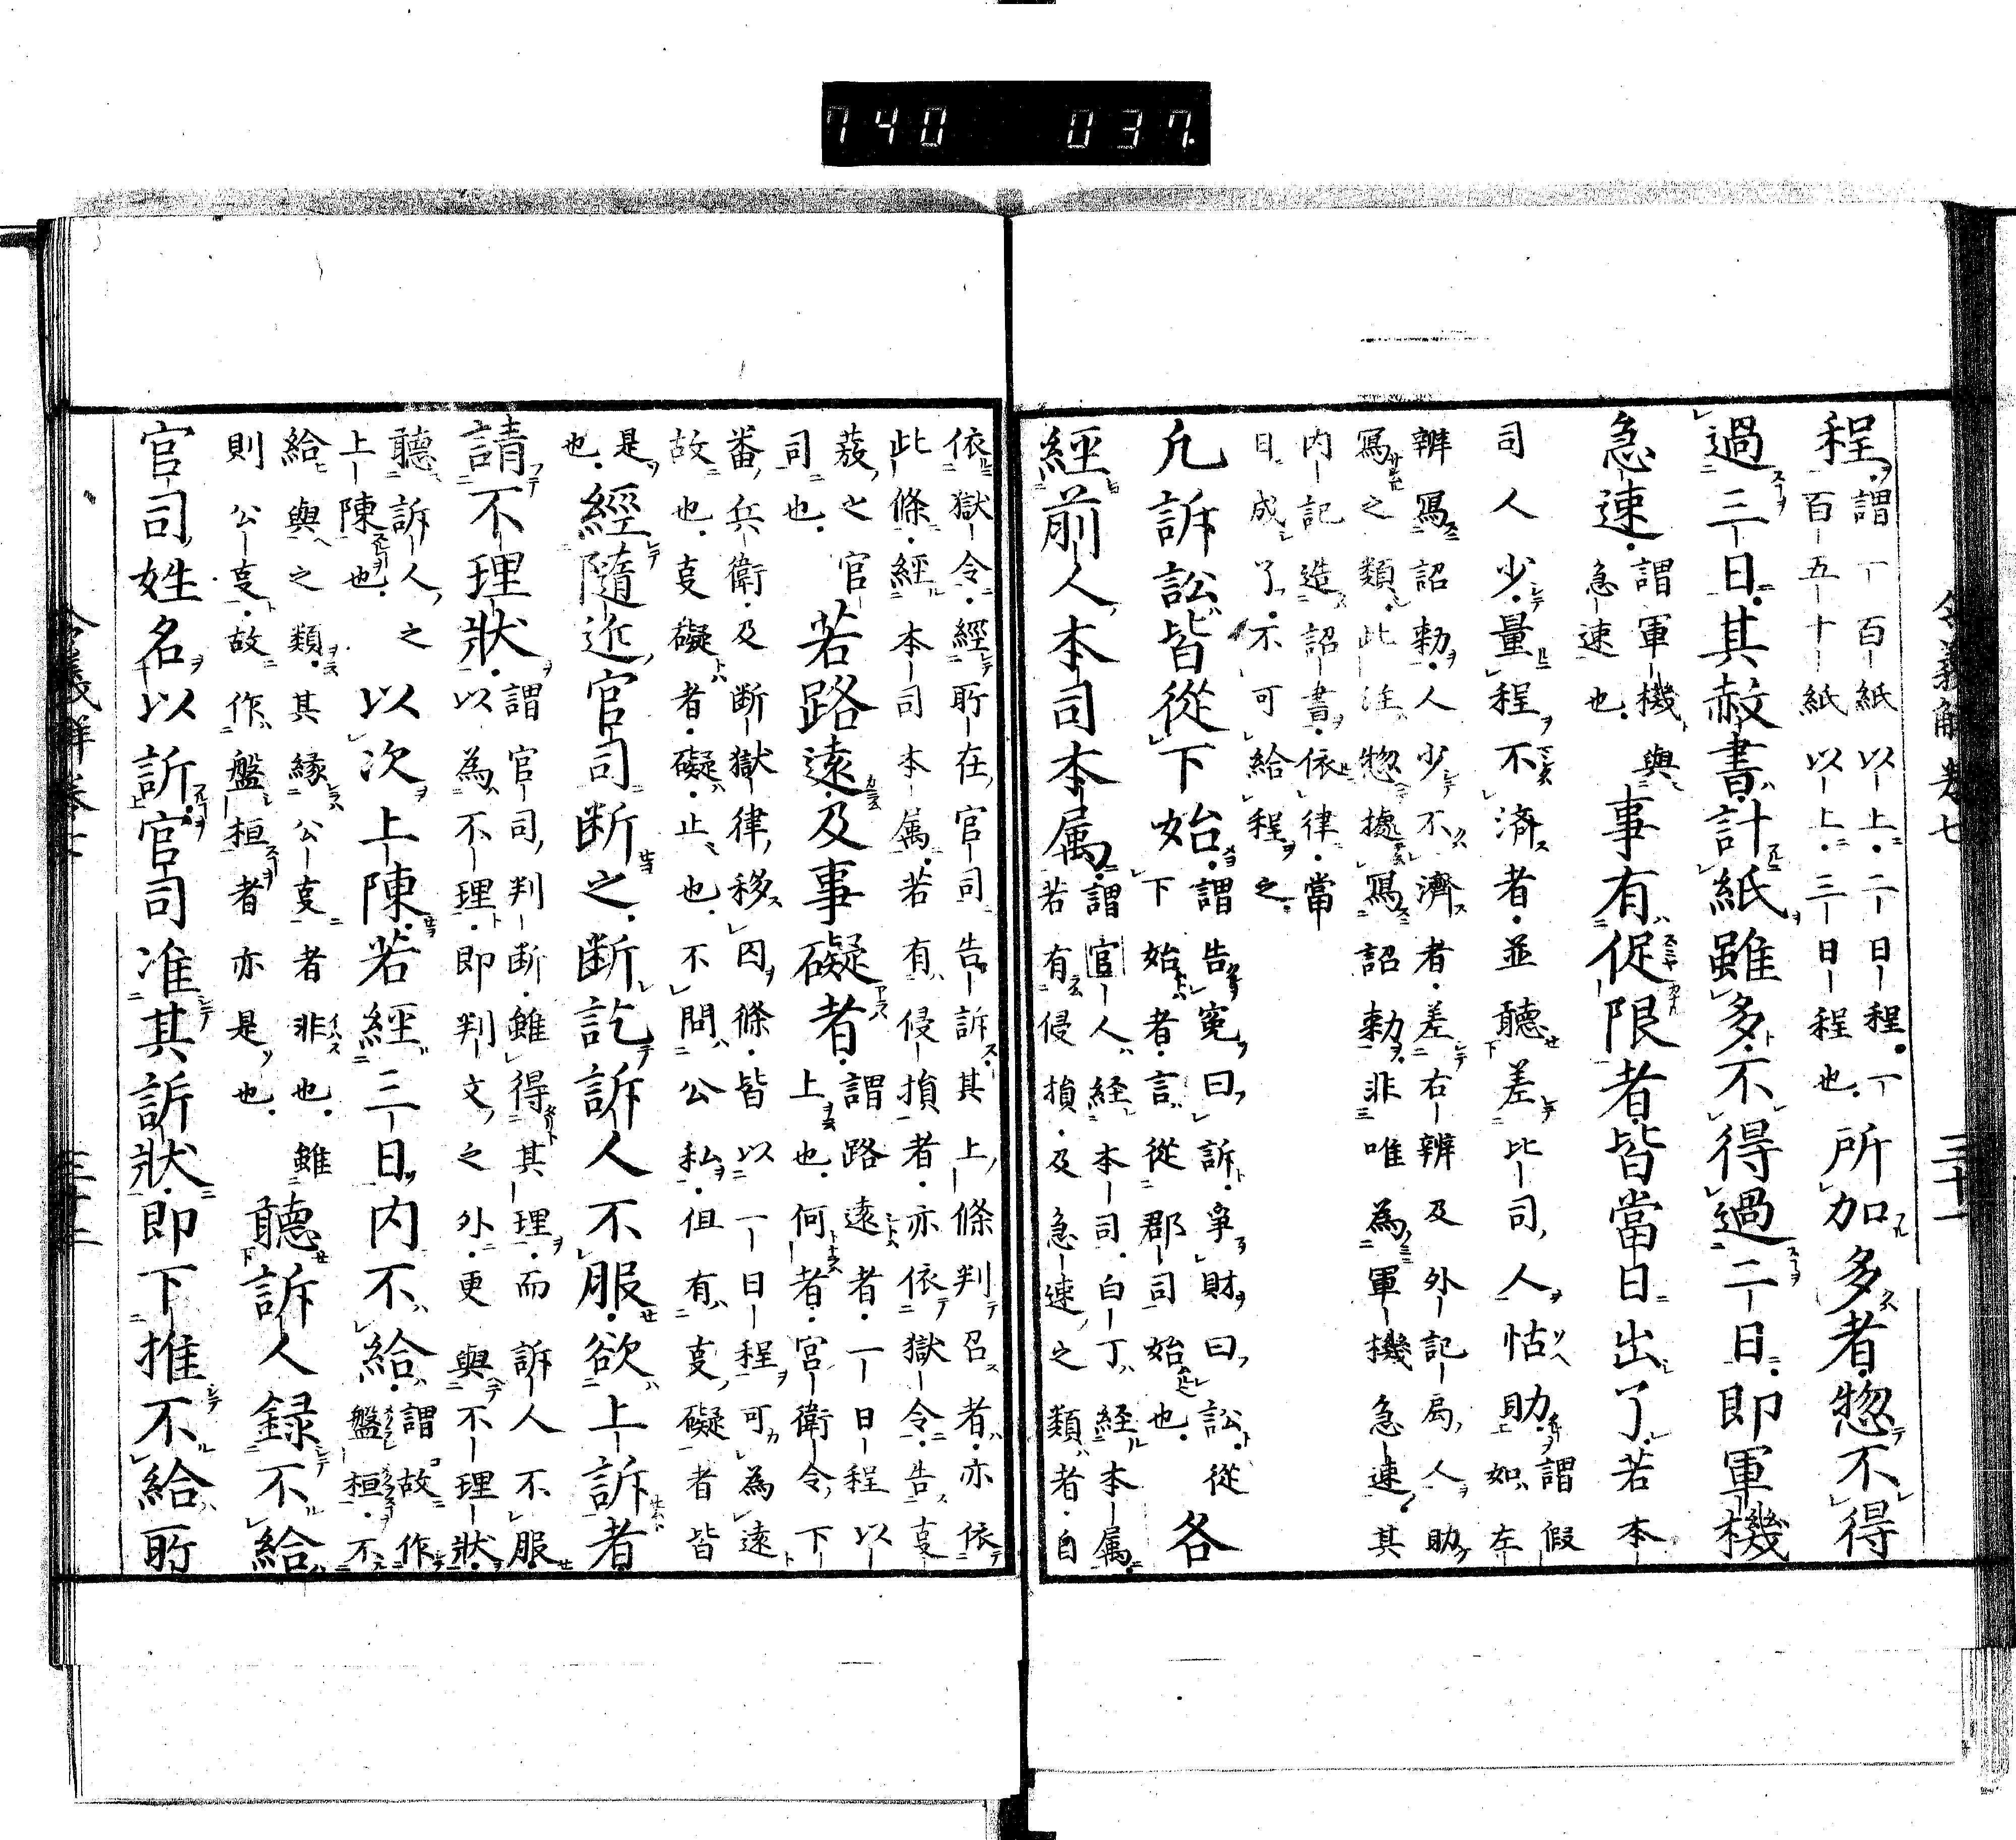 740 037
令義解卷七 三十一
程謂一百紙以上二日程一
百五十紙以上三日程也所加多者惣不得
過三日其赦書計紙雖多不得過二日即軍機
急速謂軍機與
急速也事有促限者皆當日出了若本
司人少量程不済者並聽差比司人怗助謂假
如左
辨寫詔勅人少不濟者差右辨及外記局人助
寫之類此注惣據寫詔勅非唯為軍機急速其
內記造詔書依律當
日成了不可給程之
凡訴訟皆從下始謂告冤曰訴爭財曰訟從
下始者言從郡司始也各
經前人本司本属謂官人経本司白丁経本属
若有侵損及急速之類者自
依獄令經所在官司告訴其上條判召者亦依
此條經本司本属若有侵損者亦依獄令告叓
發之官
司也若路遠及事礙者謂路遠者一日程以
上也何者宮衛令下
番兵衛及断獄律移囚條皆以一日程可為遠
故也叓礙者礙止也不問公私但有叓礙者皆
是
也經隨近官司断之断訖訴人不服欲上訴者
請不理狀謂官司判断雖得其理而訴人不服
以為不理即判文之外更與不理狀
聽訴人之
上陳也以次上陳若經三日内不給謂故作
盤桓不
給與之類其緣公叓者非也雖
則公叓故作盤桓者亦是也聽訴人録不給
官司姓名以訴官司准其訴狀即下推不給所